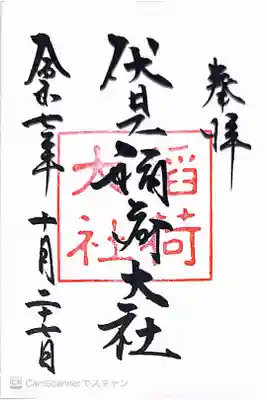 奉拝
伏見稲荷大社
令和七年 十月二十七日
稲荷
大社
CS CamScannerでスキャン